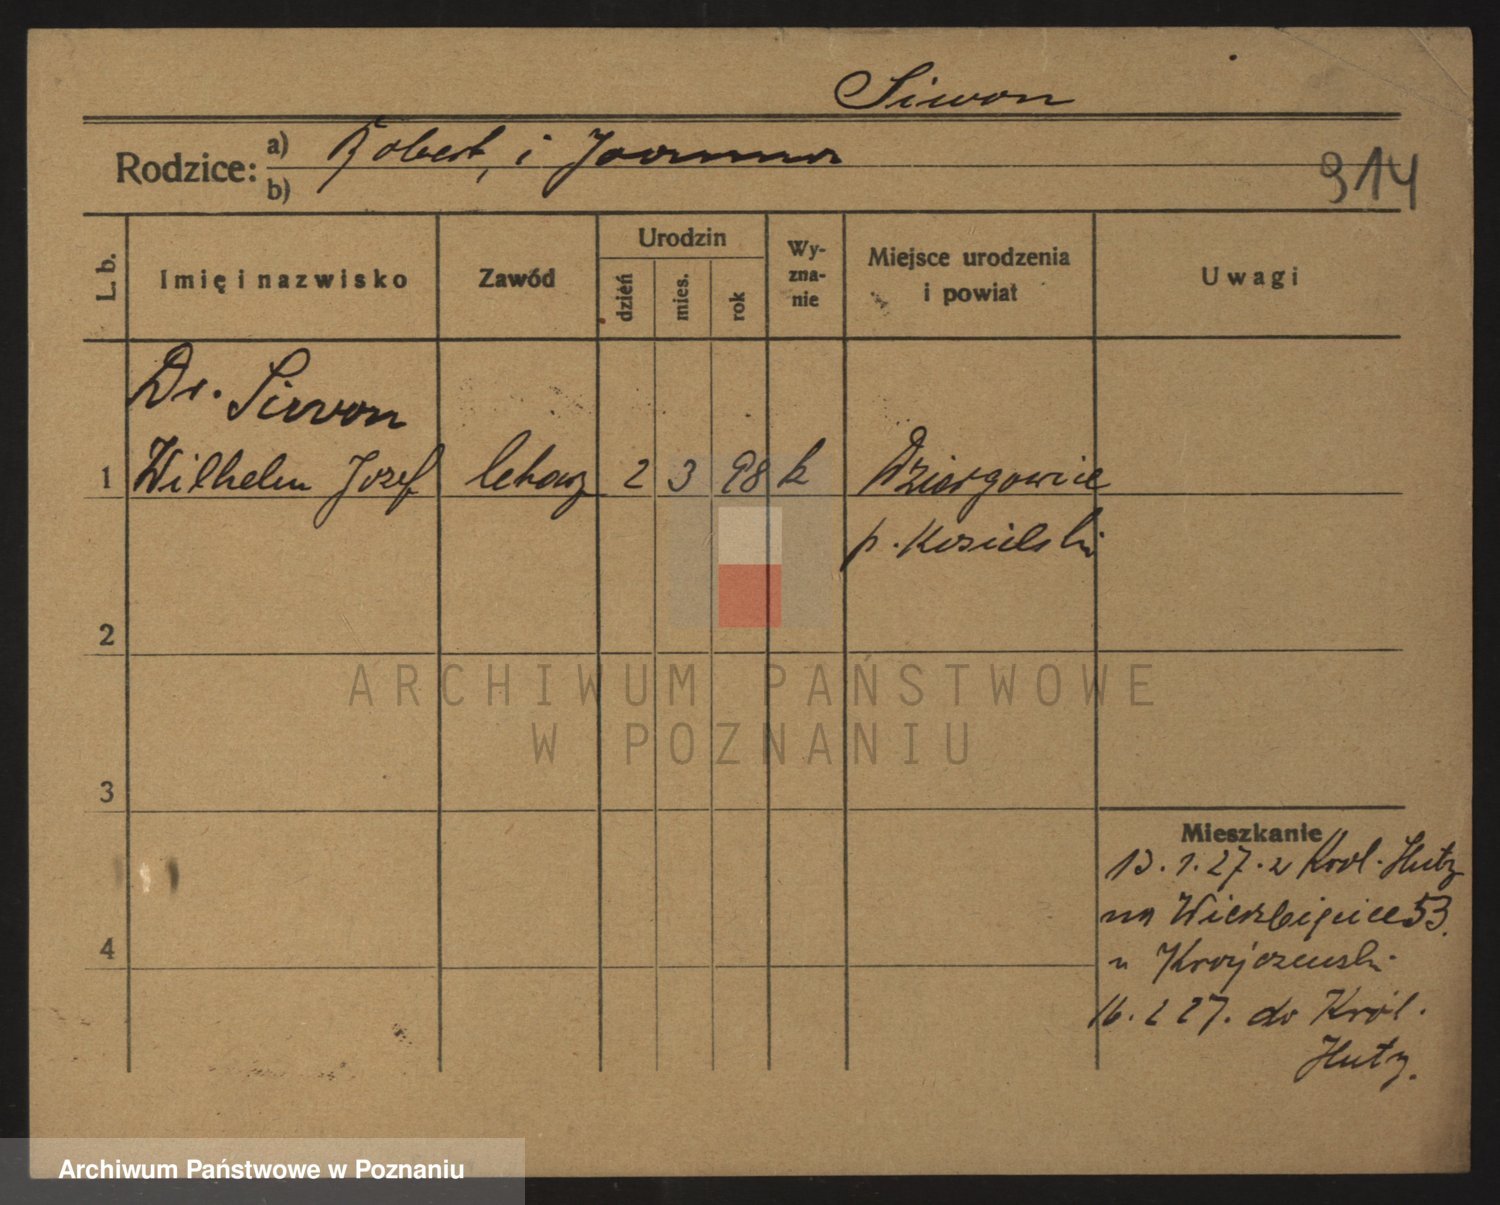 Siwon
Rodzice: a) Robert, i Joanna
b)
914
L. b.
Imię i nazwisko
Zawód
Urodzin
dzień
mies.
rok
Wy-
zna-
nie
Miejsce urodzenia
i powiat
Uwagi
Dr. Siwon
1 Wilhelm Jozef lekarz 2 3 98 k Dziergowice
p. Kozielski
2
3
4
Mieszkanie
13.1.27. z Krol. Huty
na Wierzbięcice 53.
u Krajczewski
16.2 27. do Król.
Huty.
ARCHIWUM PAŃSTWOWE
W POZNANIU
Archiwum Państwowe w Poznaniu